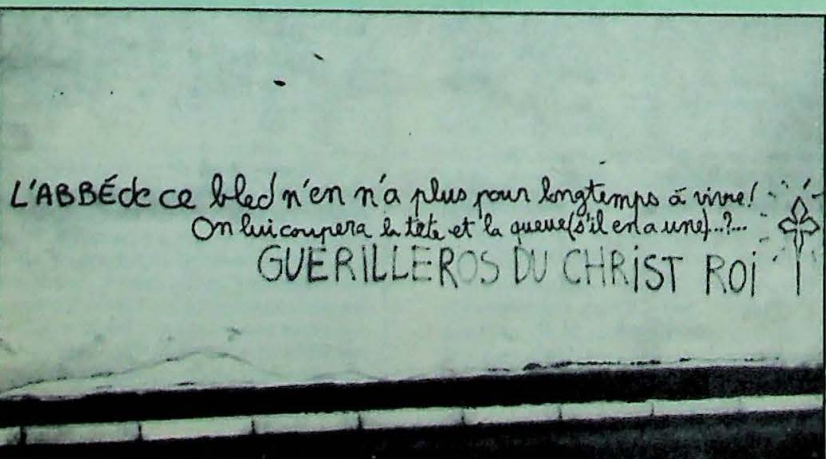 L'ABBÉ de ce bled n'en n'a plus pour longtemps à vivre!
On lui coupera la tête et la queue (s'il en a une)..?...
GUERILLEROS DU CHRIST ROI